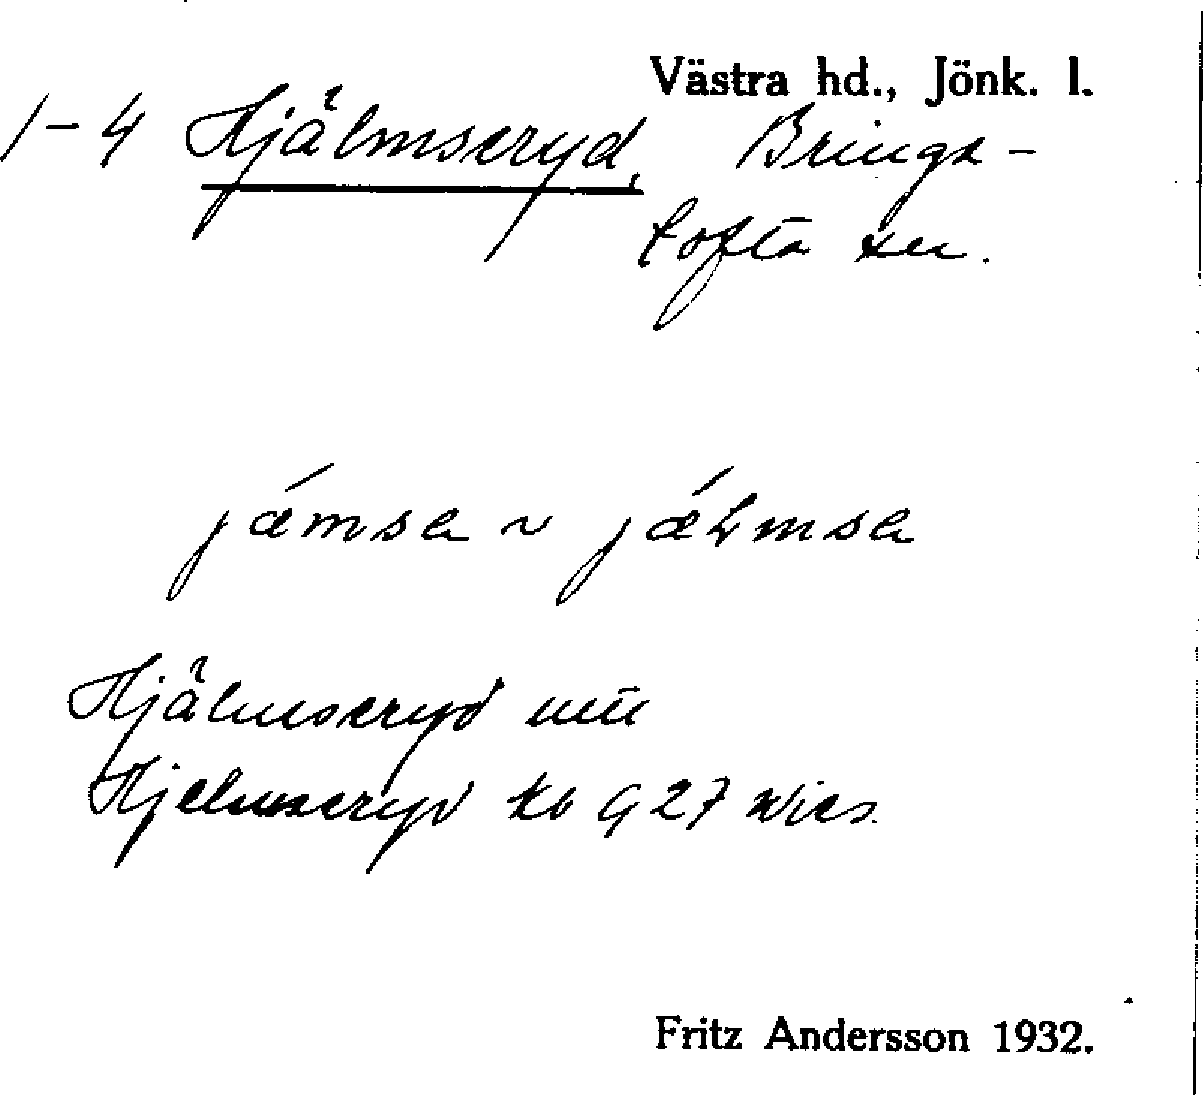 Västra hd., Jönk. l.
1-4 Hjälmseryd, Brings-
tofta sn.
jǽmsa ~ jǽLmsa
Hjälmseryd
Hjelmseryd kb G 27
Fritz Andersson 1932.